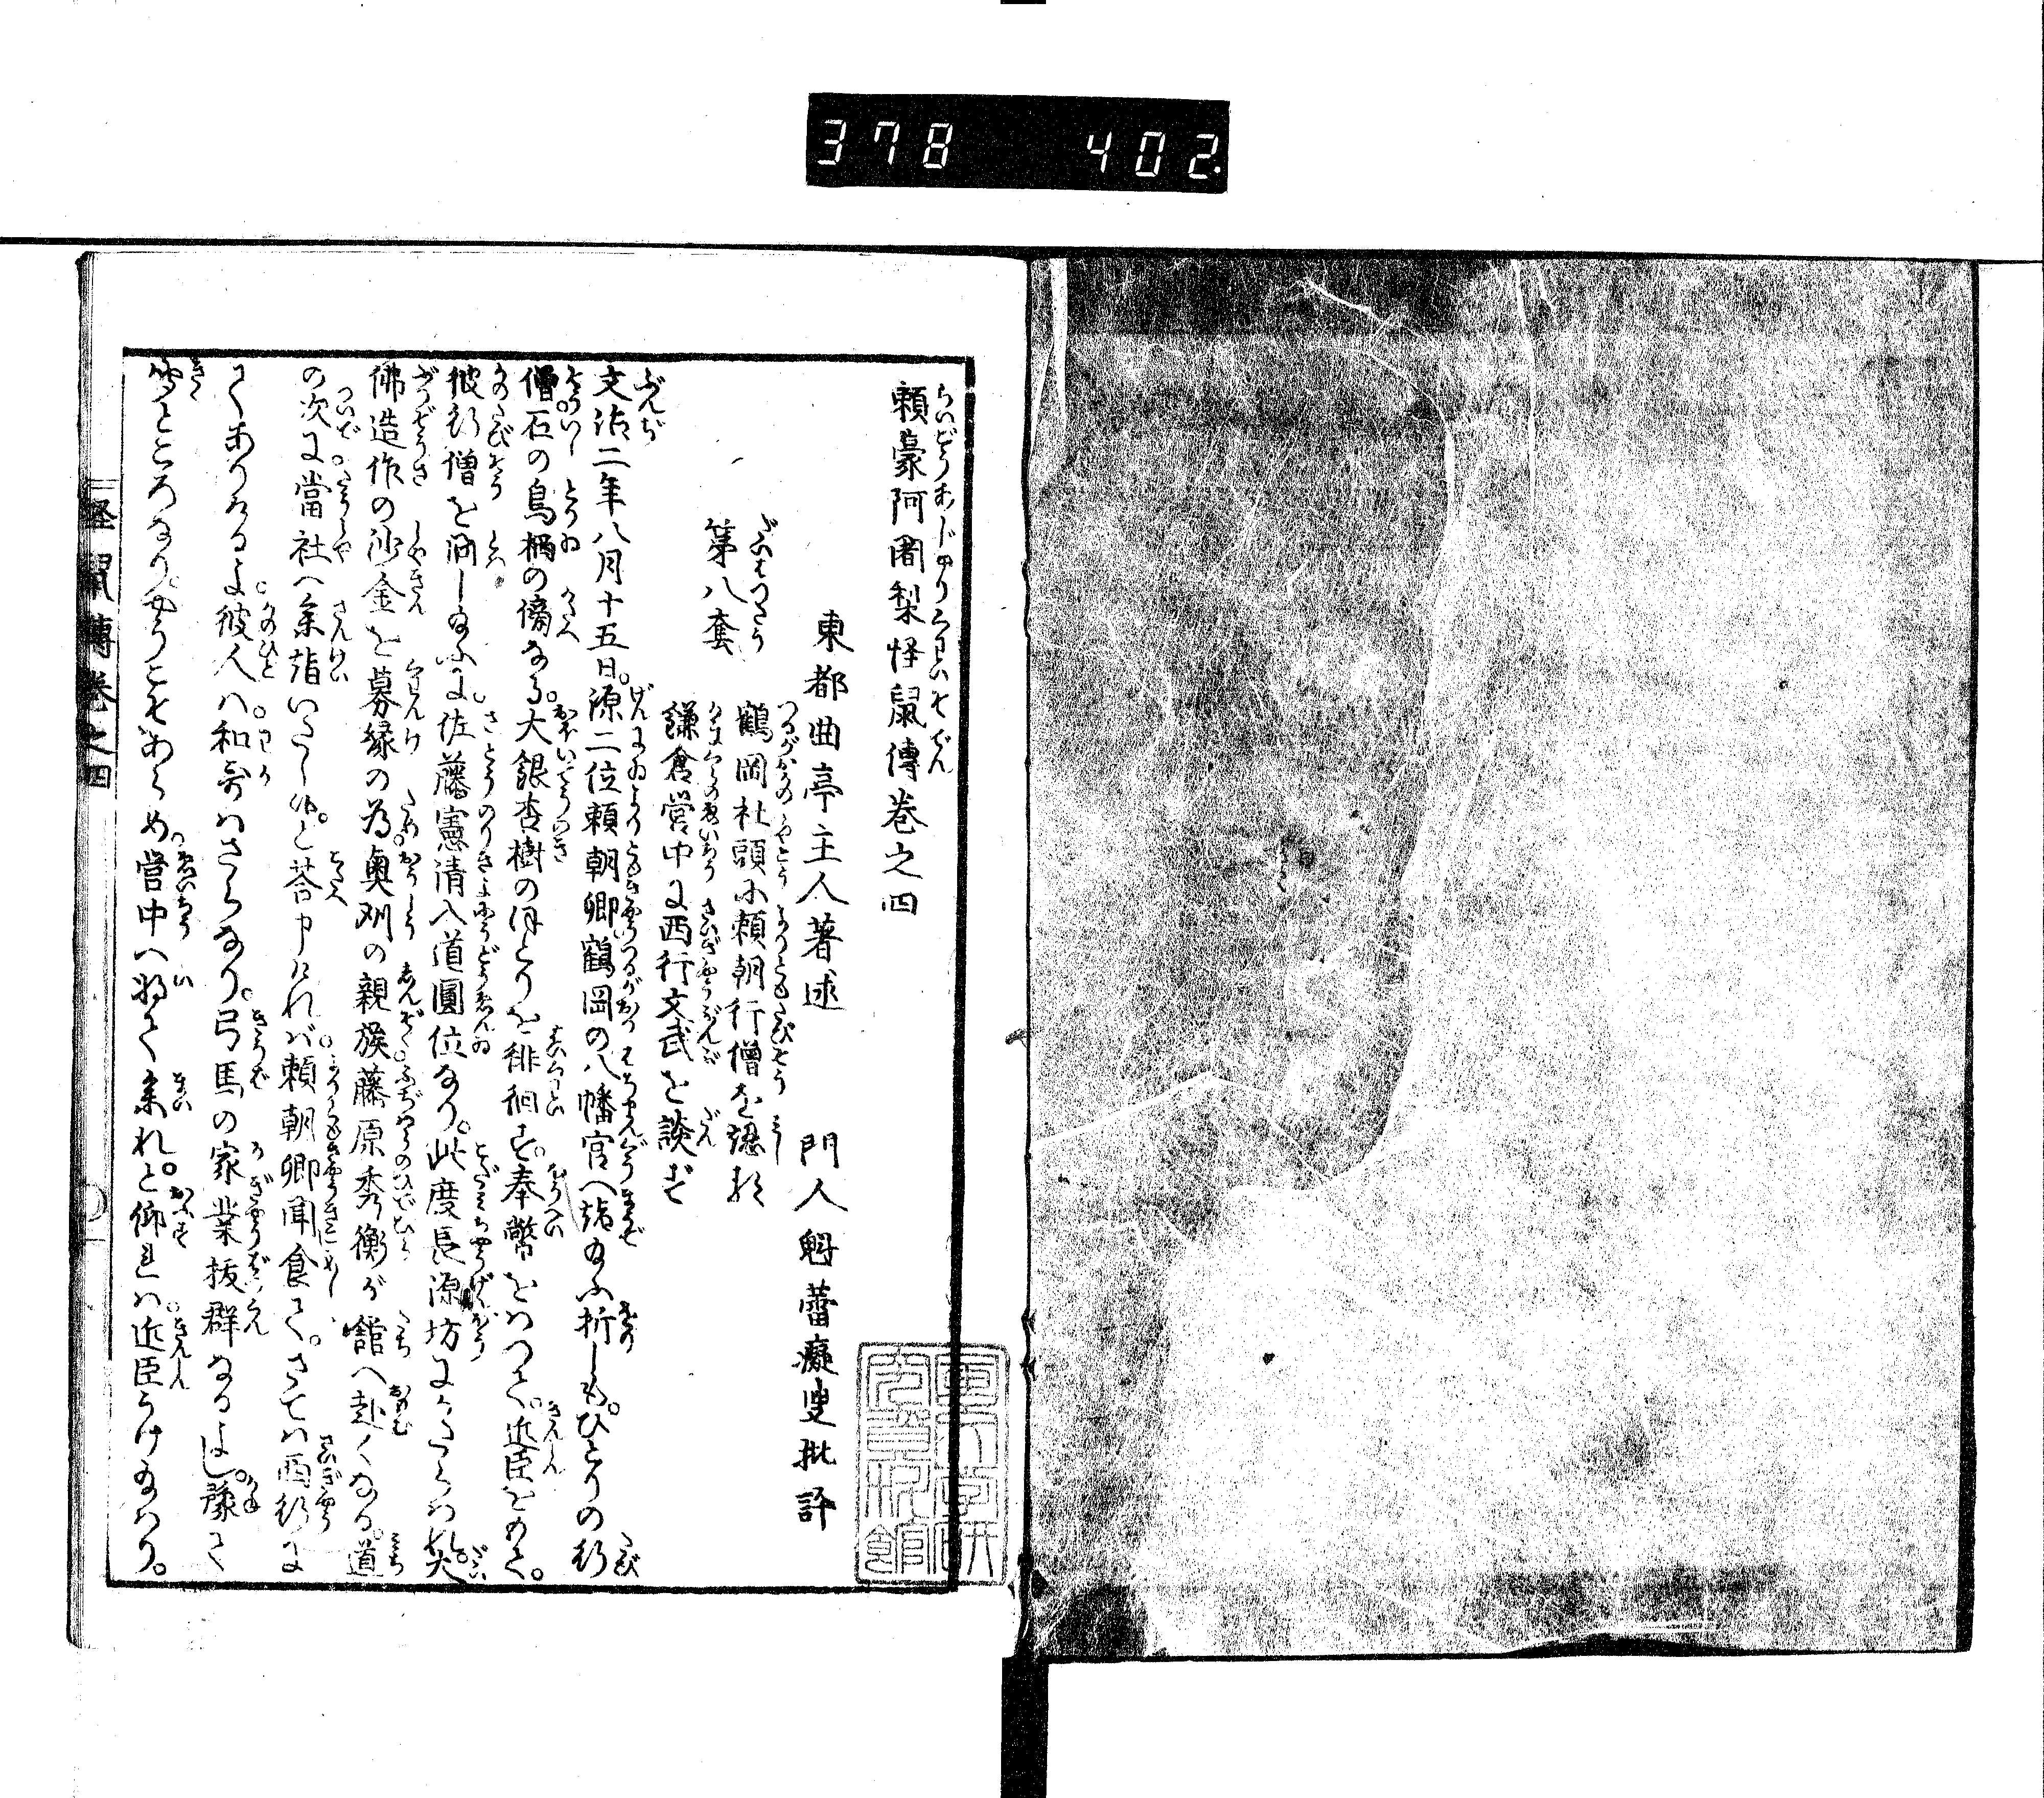 378 402
頼豪阿闍梨怪鼠傳巻之四
東都曲亭主人著述 門人魁蕾癡叟批評
第八套
鶴岡社頭に頼朝行僧を認む
鎌倉営中に西行文武を談ず
文治二年八月十五日。源二位頼朝卿鶴岡の八幡宮へ詣給ふ折しも。ひとりの行
僧石の鳥栖の傍なる。大銀杏樹のほとりを徘徊す。奉幣をはつて。近臣をめて。
彼行僧を問し給ふに。佐藤憲清入道圓位なり。此度長源坊にかたらはれ。大
佛造作の沙金を募縁の為。奥州の親族藤原秀衡が舘へ赴くなる。道
の次に當社へ参詣いたし候。と荅申にれバ。頼朝卿聞食て。さては西行に
てありけるよ。彼人ハ。和哥はさらなり。弓馬の家業抜群なるよし。豫て
聞ところなり。やうこそあらめ。営中へ将て参れ。と仰すれは。近臣うけ給はり。
怪鼠傳巻之四